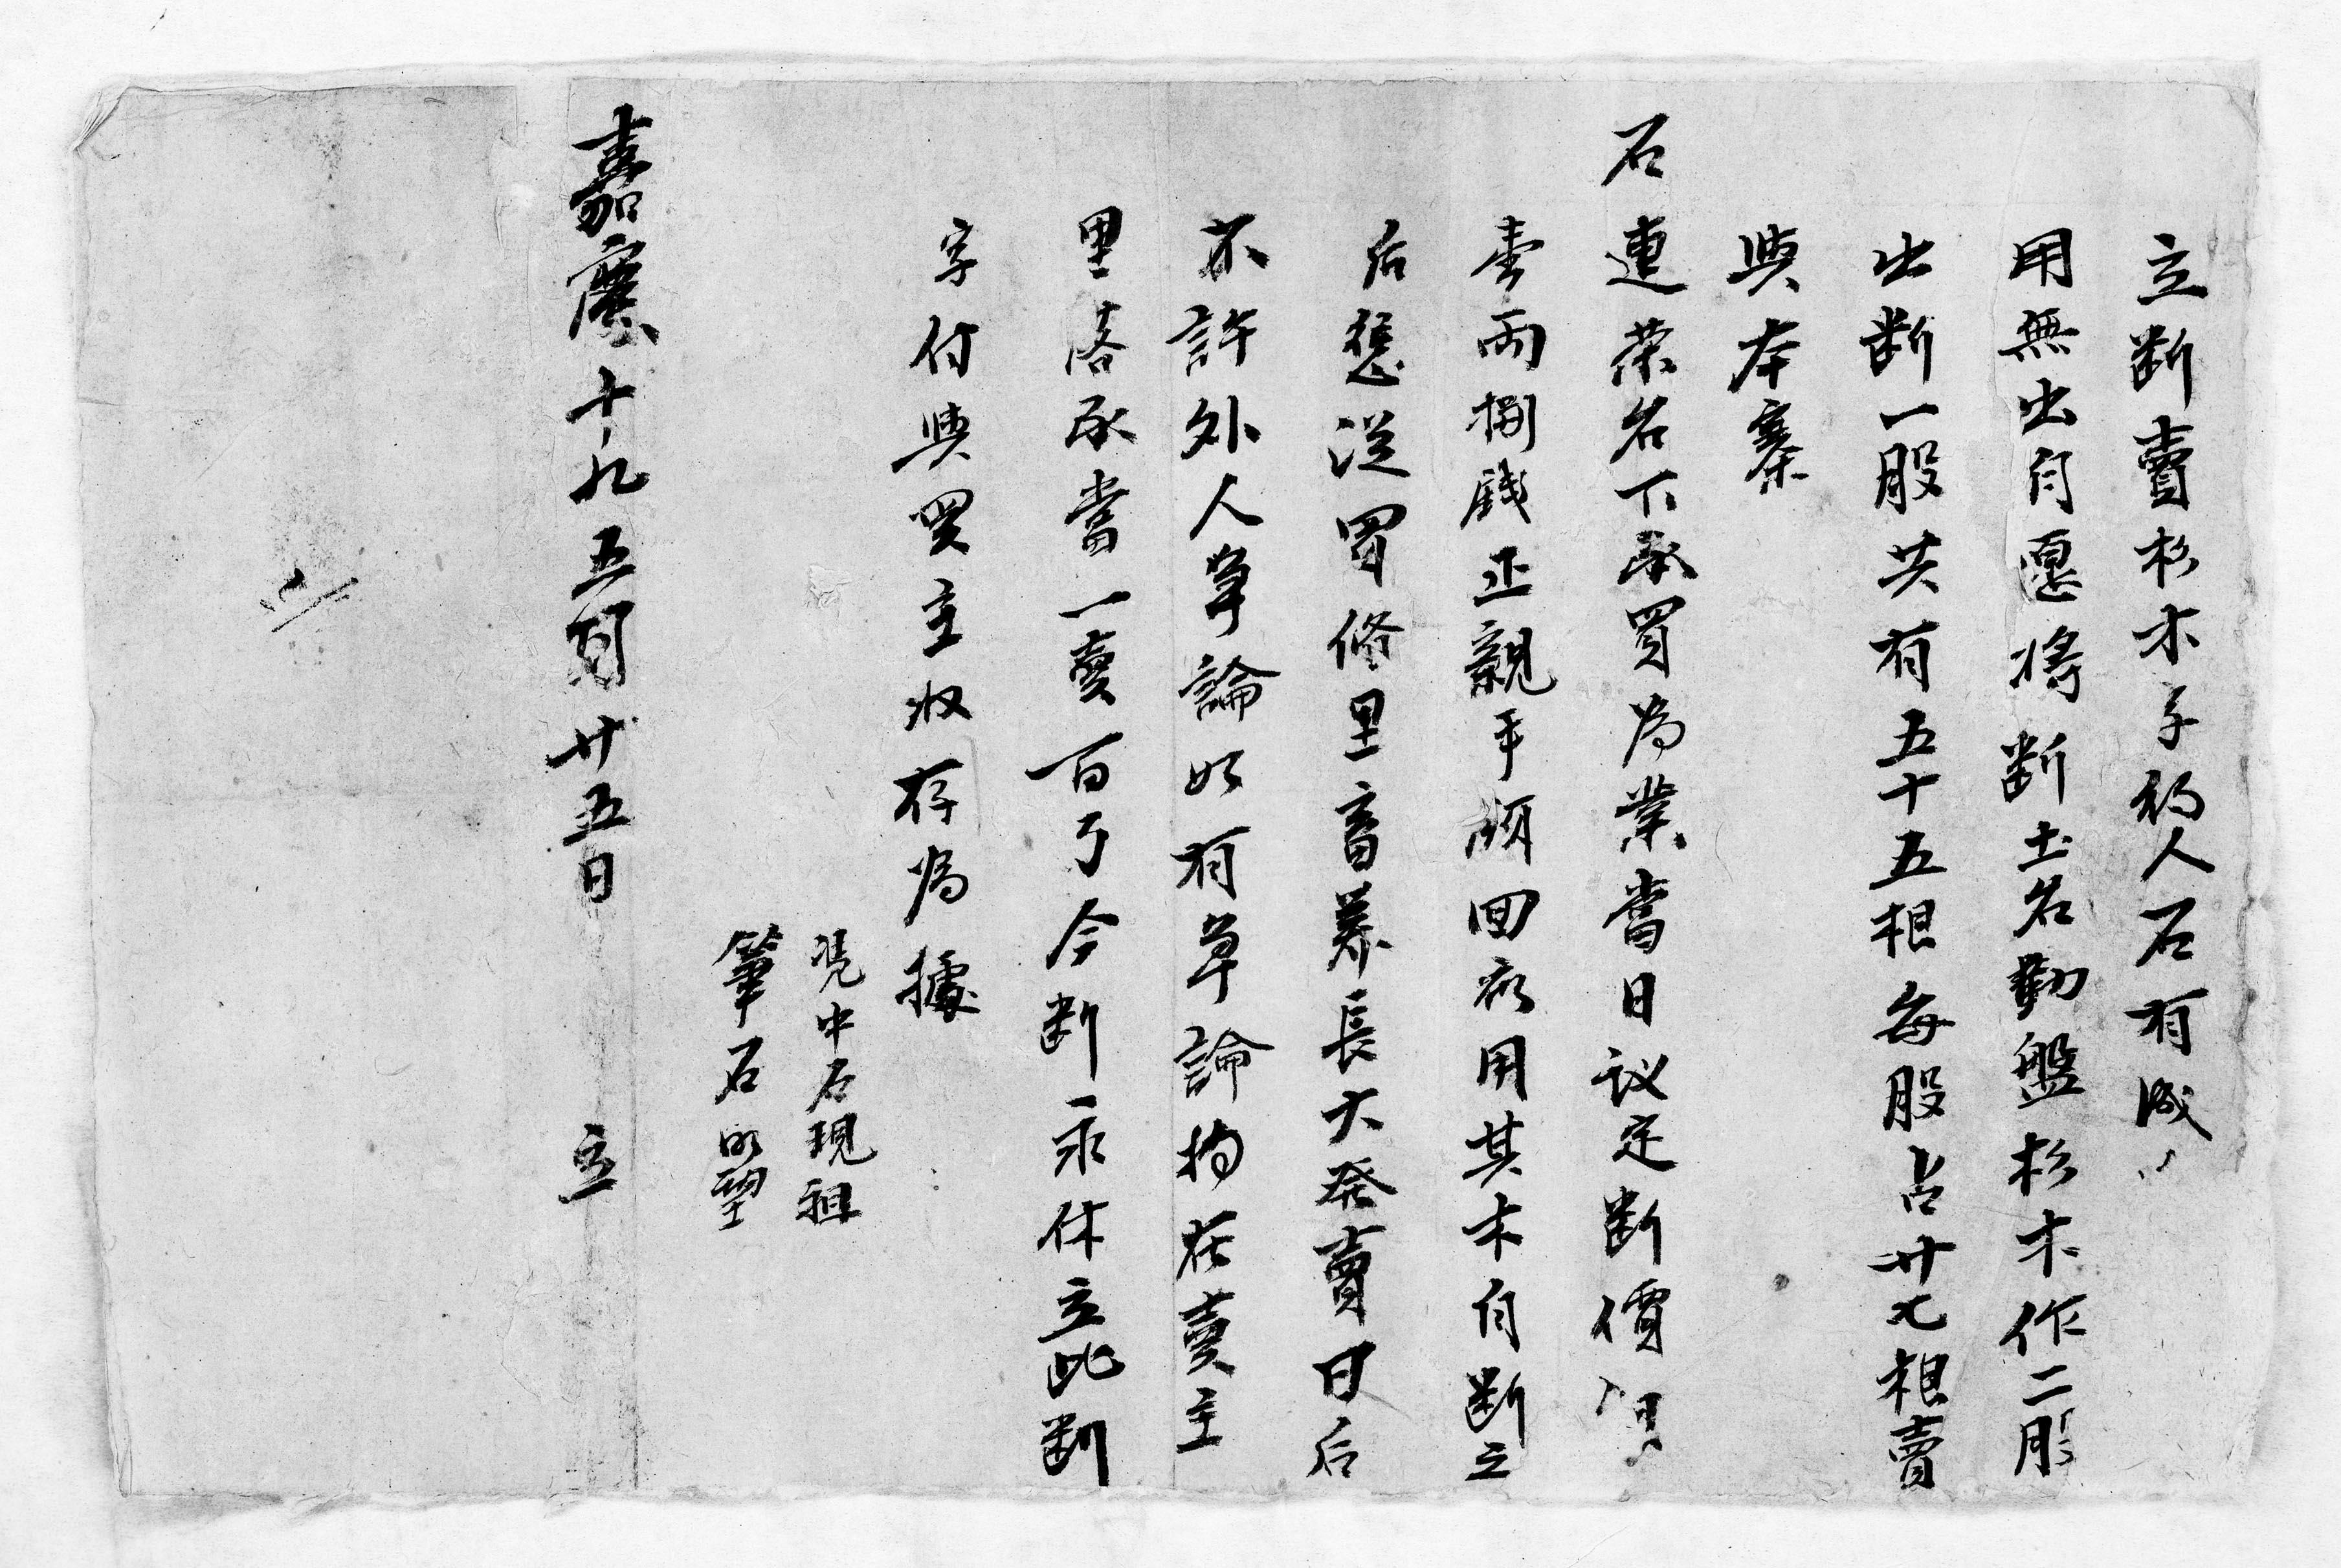 立断賣杉木子約人石有成
用無出自愿将断土名勤盤杉木作二股
出断一股共有五十五根每股占廿七根賣
與本寨
石連荣名下承買為業當日议定断價
壹两捌錢正親手領回應用其木自断之
后慿從買修里畜養長大発賣日后
不許外人争論如有争論拘在賣主
里落承當一賣百了今断永休立此断
字付與買主收存為據
凭中石現祖
筆石
嘉慶十九五月廿五日 立